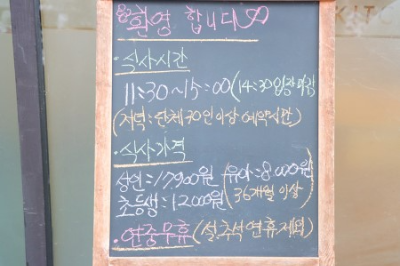 환영 합니다
· 식사시간
11:30~15:00 (14:30입장마감)
(저녁: 단체30인 이상 예약시간)
· 식사가격
성인: 17,900원 유아: 8,000원
초등생: 12,000원 (36개월 이상)
· 연중무휴 (설.추석 연휴 제외)